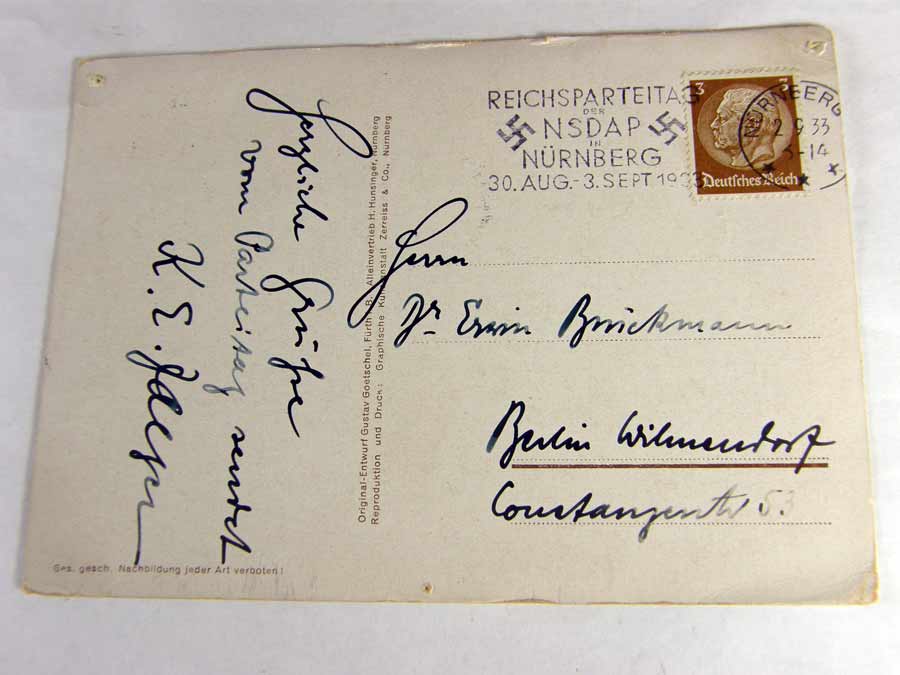 REICHSPARTEITAG
DER
NSDAP
IN
NÜRNBERG
30. AUG.-3. SEPT 1933
3 3
Deutsches Reich
NÜRNBERG
2 9 33
-14
Herrn
Dr Erwin Brückmann
Berlin Wilmersdorf
53
Herzliche Grüße
vom Parteitag sendet
K. E.
Original-Entwurf Gustav Goetschel, Fürth i. B. Alleinvertrieb H. Hunsinger, Nürnberg
Reproduktion und Druck: Graphische Kunstanstalt Zerreiss & Co., Nürnberg
Ges. gesch. Nachbildung jeder Art verboten!